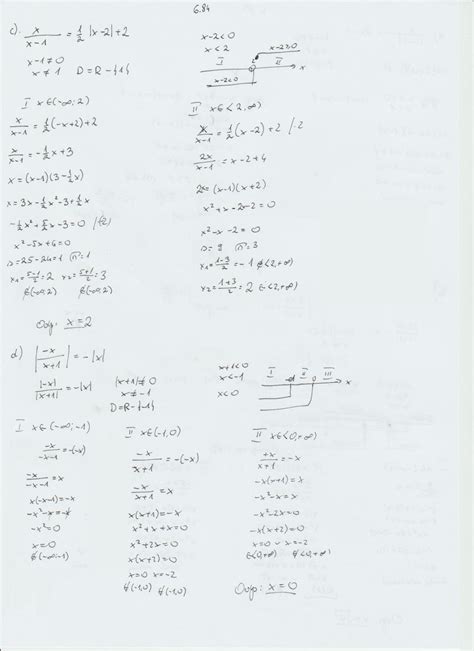 6.84
c). x/(x-1) = 1/2 |x-2|+2
x-1≠0
x≠1 D=R-{1}
x-2<0
x<2
x-2≥0
I II
x-2<0
x
I x∈(-∞;2)
x/(x-1) = 1/2(-x+2)+2
x/(x-1) = -1/2x+3
x=(x-1)(3-1/2x)
x=3x-1/2x²-3+1/2x
-1/2x²+5/2x-3=0 /(-2)
x²-5x+6=0
Δ=25-24=1 √Δ=1
x₁=(5-1)/2=2 x₂=(5+1)/2=3
∉(-∞,2) ∉(-∞,2)
II x∈<2,∞)
x/(x-1) = 1/2(x-2)+2 /·2
2x/(x-1) = x-2+4
2x=(x-1)(x+2)
x²+x-2x-2=0
x²-x-2=0
Δ=9 √Δ=3
x₁=(1-3)/2=-1 ∉<2,+∞)
x₂=(1+3)/2=2 ∈<2,+∞)
Odp: x=2
d) |-x/(x+1)|=-|x|
|-x|/|x+1|=-|x|
|x+1|≠0
x≠-1
D=R-{-1}
x+1<0
x<-1
x<0
I II III
x
I x∈(-∞;-1)
-x/(-x-1)=-(-x)
-x/(-x-1)=x
x(-x-1)=-x
-x²-x=-x
-x²=0
x=0
∉(-∞;-1)
II x∈(-1,0)
-x/(x+1)=-(-x)
-x/(x+1)=x
x(x+1)=-x
x²+x+x=0
x²+2x=0
x(x+2)=0
x=0 x=-2
∉(-1,0) ∉(-1,0)
II x∈<0,+∞)
+x/(x+1)=-x
-x(x+1)=x
-x²-x=x
-x²-2x=0
-x(x+2)=0
x=0 ∨ x=-2
∈<0,+∞) ∉<0,+∞)
Odp: x=0